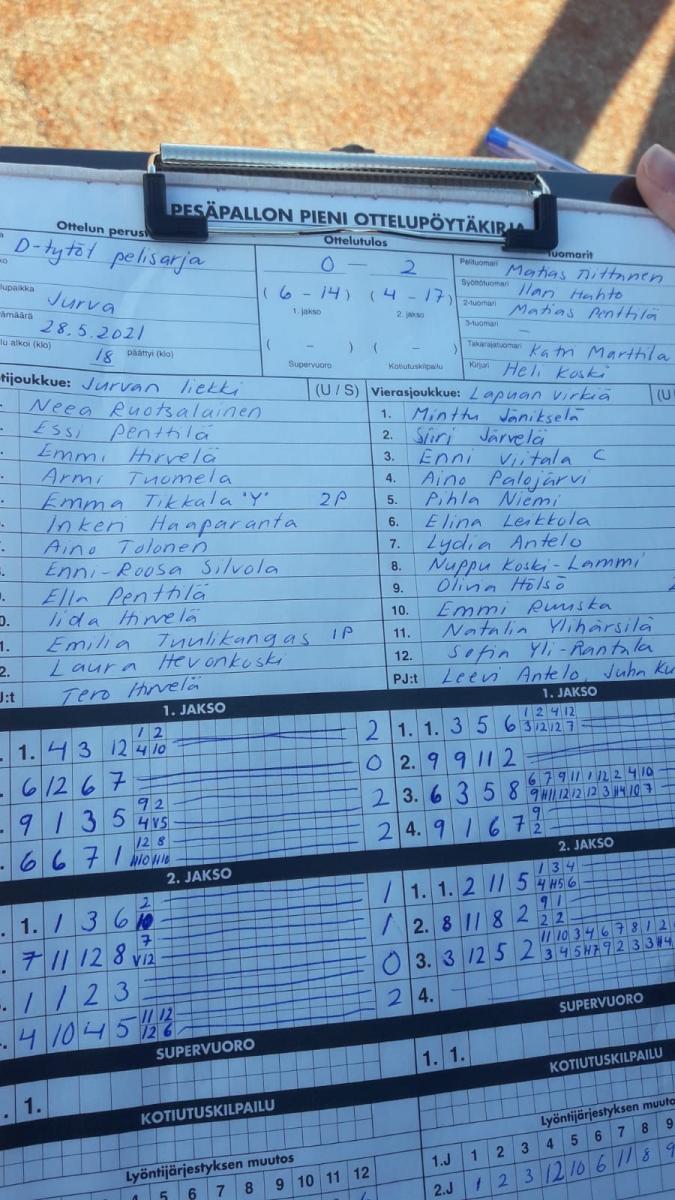 PESÄPALLON PIENI OTTELUPÖYTÄKIRJA
Ottelun perus
Ottelutulos
tuomarit
D-tytöt pelisarja
0 – 2
Pelituomari Matias Nittynen
Syöttötuomari Ilari Hahto
lupaikka Jurva
( 6 – 14 ) ( 4 – 17 )
1. jakso 2. jakso
2-tuomari Matias Penttilä
ämäärä 28.5.2021
3-tuomari –
lu alkoi (klo) 18 päättyi (klo)
( – ) ( – )
Supervuoro Kotiutuskilpailu
Takarajatuomari Katri Marttila
Kirjuri Heli Koski
tijoukkue: Jurvan liekki (U / S)
Vierasjoukkue: Lapuan virkiä (U
Neea Ruotsalainen
1. Minttu Jänikselä
Essi Penttilä
2. Siiri Järvelä
Emmi Hirvelä
3. Enni Viitala C
Armi Tuomela
4. Aino Palojärvi
Emma Tikkala "Y" 2P
5. Pihla Niemi
Inkeri Haaparanta
6. Elina Leikkola
Aino Tolonen
7. Lydia Antelo
Enni-Roosa Silvola
8. Nuppu Koski-Lammi
Ella Penttilä
9. Olivia Hölsö
0. Iida Hirvelä
10. Emmi Ruuska
1. Emilia Tuulikangas 1P
11. Natalia Ylihärsilä
2. Laura Hevonkoski
12. Sofia Yli-Rantala
J:t Tero Hirvelä
PJ:t Leevi Antelo, Juha Ku
1. JAKSO
1. 4 3 12 1 2 2
4 10
6 12 6 7 0
9 1 3 5 9 2 2
4 V5
6 6 7 1 12 8 2
1. JAKSO
1. 1. 3 5 6 1 2 4 12
3 12 12 7
2. 9 9 11 2
3. 6 3 5 8 6 7 9 11 1 12 2 4 10
4. 9 1 6 7 9
2
2. JAKSO
1. 1 3 6 2 1
10
7 11 12 8 7 1
V12
1 1 2 3 0
4 10 4 5 11 12 2
12 6
2. JAKSO
1. 1. 2 11 5 1 3 4
4 H5 6
2. 8 11 8 2 9 1
2 2
3. 3 12 5 2 11 10 3 4 6 7 8 1 2
3 4 5 H7 9 2 3 3 H4
4.
SUPERVUORO
1.
SUPERVUORO
1. 1.
KOTIUTUSKILPAILU
KOTIUTUSKILPAILU
Lyöntijärjestyksen muutos
4 5 6 7 8 9 10 11 12
Lyöntijärjestyksen muuto
1.J 1 2 3 4 5 6 7 8 9
2.J 1 2 3 12 10 6 11 8 9